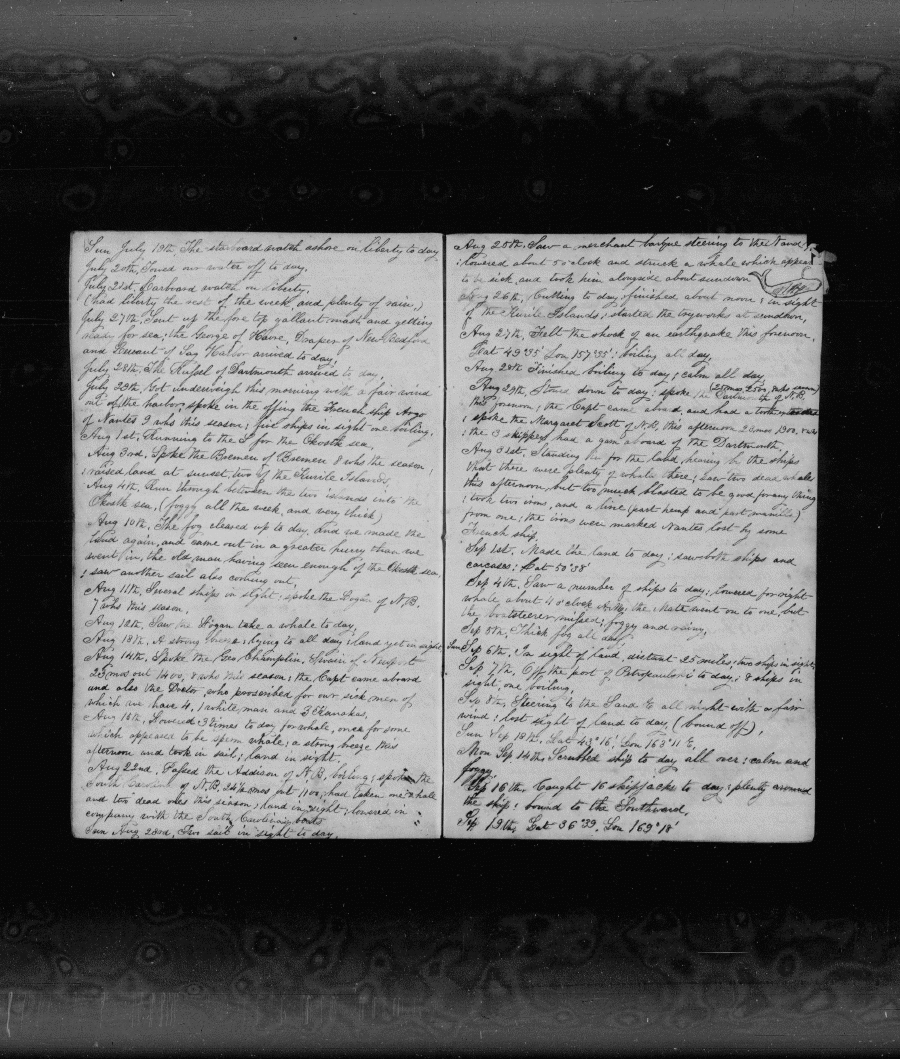 Sun July 19th, The starboard watch ashore on liberty to day
July 20th, Towed our water off to day,
July 21st, Larboard watch on liberty,
(had liberty the rest of the week and plenty of rain,)
July 27th, Sent up the fore top gallant mast and getting
ready for sea; the George of Havre, Draper of New Bedford
and Versant of Sag Harbor arrived to day,
July 28th, The Russel of Dartmouth arrived to day,
July 29th Got underweigh this morning with a fair wind
out of the harbor; spoke in the offing the French ship Argo
of Nantes 9 whs this season; five ships in sight one boiling,
Aug 1st, Running to the S for the Okotsk sea,
Aug 3rd, Spoke the Bremen of Bremen 8 whs the season,
; raised land at sunset, two of the Kurile Islands,
Aug 4th, Run through between the two islands into the
Okotsk sea, (foggy all the week, and very thick)
Aug 10th, The fog cleared up to day, and we made the
land again, and came out in a greater hurry than we
went in, the old man having seen enough of the Okotsk sea,
; saw another sail also coming out,
Aug 11th, Several ships in sight; spoke the Logan of N.B.
7 whs this season,
Aug 12th, Saw the Logan take a whale to day,
Aug 13th, A strong breeze; lying to all day; land yet in sight,
Aug 14th, Spoke the Geo Champlin, Swain of Newport
23 mos out 1400, 8 whs this season; the Capt came aboard
and also the Doctor, who prescribed for our sick men of
which we have 4, 1 white man and 3 Kanakas,
Aug 16th, Lowered 3 times to day for whale, once for some
which appeared to be sperm whale; a strong breeze this
afternoon and took in sail; land in sight,
Aug 22nd, Passed the Addison of N.B, boiling; spoke the
South Carolina of N.B, 24½ mos out 1100, had taken one whale
and two dead ones this season; land in sight; lowered in
company with the South Carolina's boats
Sun Aug 23rd, Two sail in sight to day,
Aug 25th, Saw a merchant barque steering to the N and
; lowered about 5 o'clock and struck a whale which appear
to be sick, and took him alongside about sundown
Aug 26th, Cutting to day, finished about noon; in sight
of the Kurile Islands; started the tryworks at sundown,
Aug 27th, Felt the shock of an earthquake this forenoon,
Lat 49°35' Lon 157°33'; boiling all day,
Aug 28th Finished boiling to day; calm all day
Aug 29th, Stowed down to day; spoke the of N.B.
this forenoon; the Capt came aboard, and had a
; spoke the Margaret Scott of N.B, this afternoon 23 mos 1300,
; the 3 skippers had a gam aboard of the Dartmouth,
Aug 31st, Standing in for the land, hearing by the ships
that there were plenty of whale there; saw two dead whale
this afternoon but too much blasted to be good for any thing
; took two irons, and a line (part hemp and part manilla)
from one; the irons were marked Nantes lost by some
French ship,
Sep 1st, Made the land to day; saw both ships and
carcases; Lat 50°58'
Sep 4th, Saw a number of ships to day; lowered for right
whale about 4 o'clock A.M; the Mate went on to one, but
the boatsteerer missed; foggy and rainy,
Sep 5th, Thick fog all day
Sun Sep 6th, In sight of land, distant 25 miles; two ships in sight;
Sep 7th, Off the port of Petropaulovski to day; 8 ships in
sight, one boiling,
Sep 8th, Steering to the S and E all night with a fair
wind; lost sight of land to day, (bound off),
Sun Sep 13th, Lat 43°16', Lon 163°11 E,
Mon Sep 14th, Scrubbed ship to day all over; calm and
foggy
Sep 16th, Caught 16 skipjacks to day; plenty around
the ship; bound to the Southward,
Sep 19th, Lat 36°39, Lon 169°18'